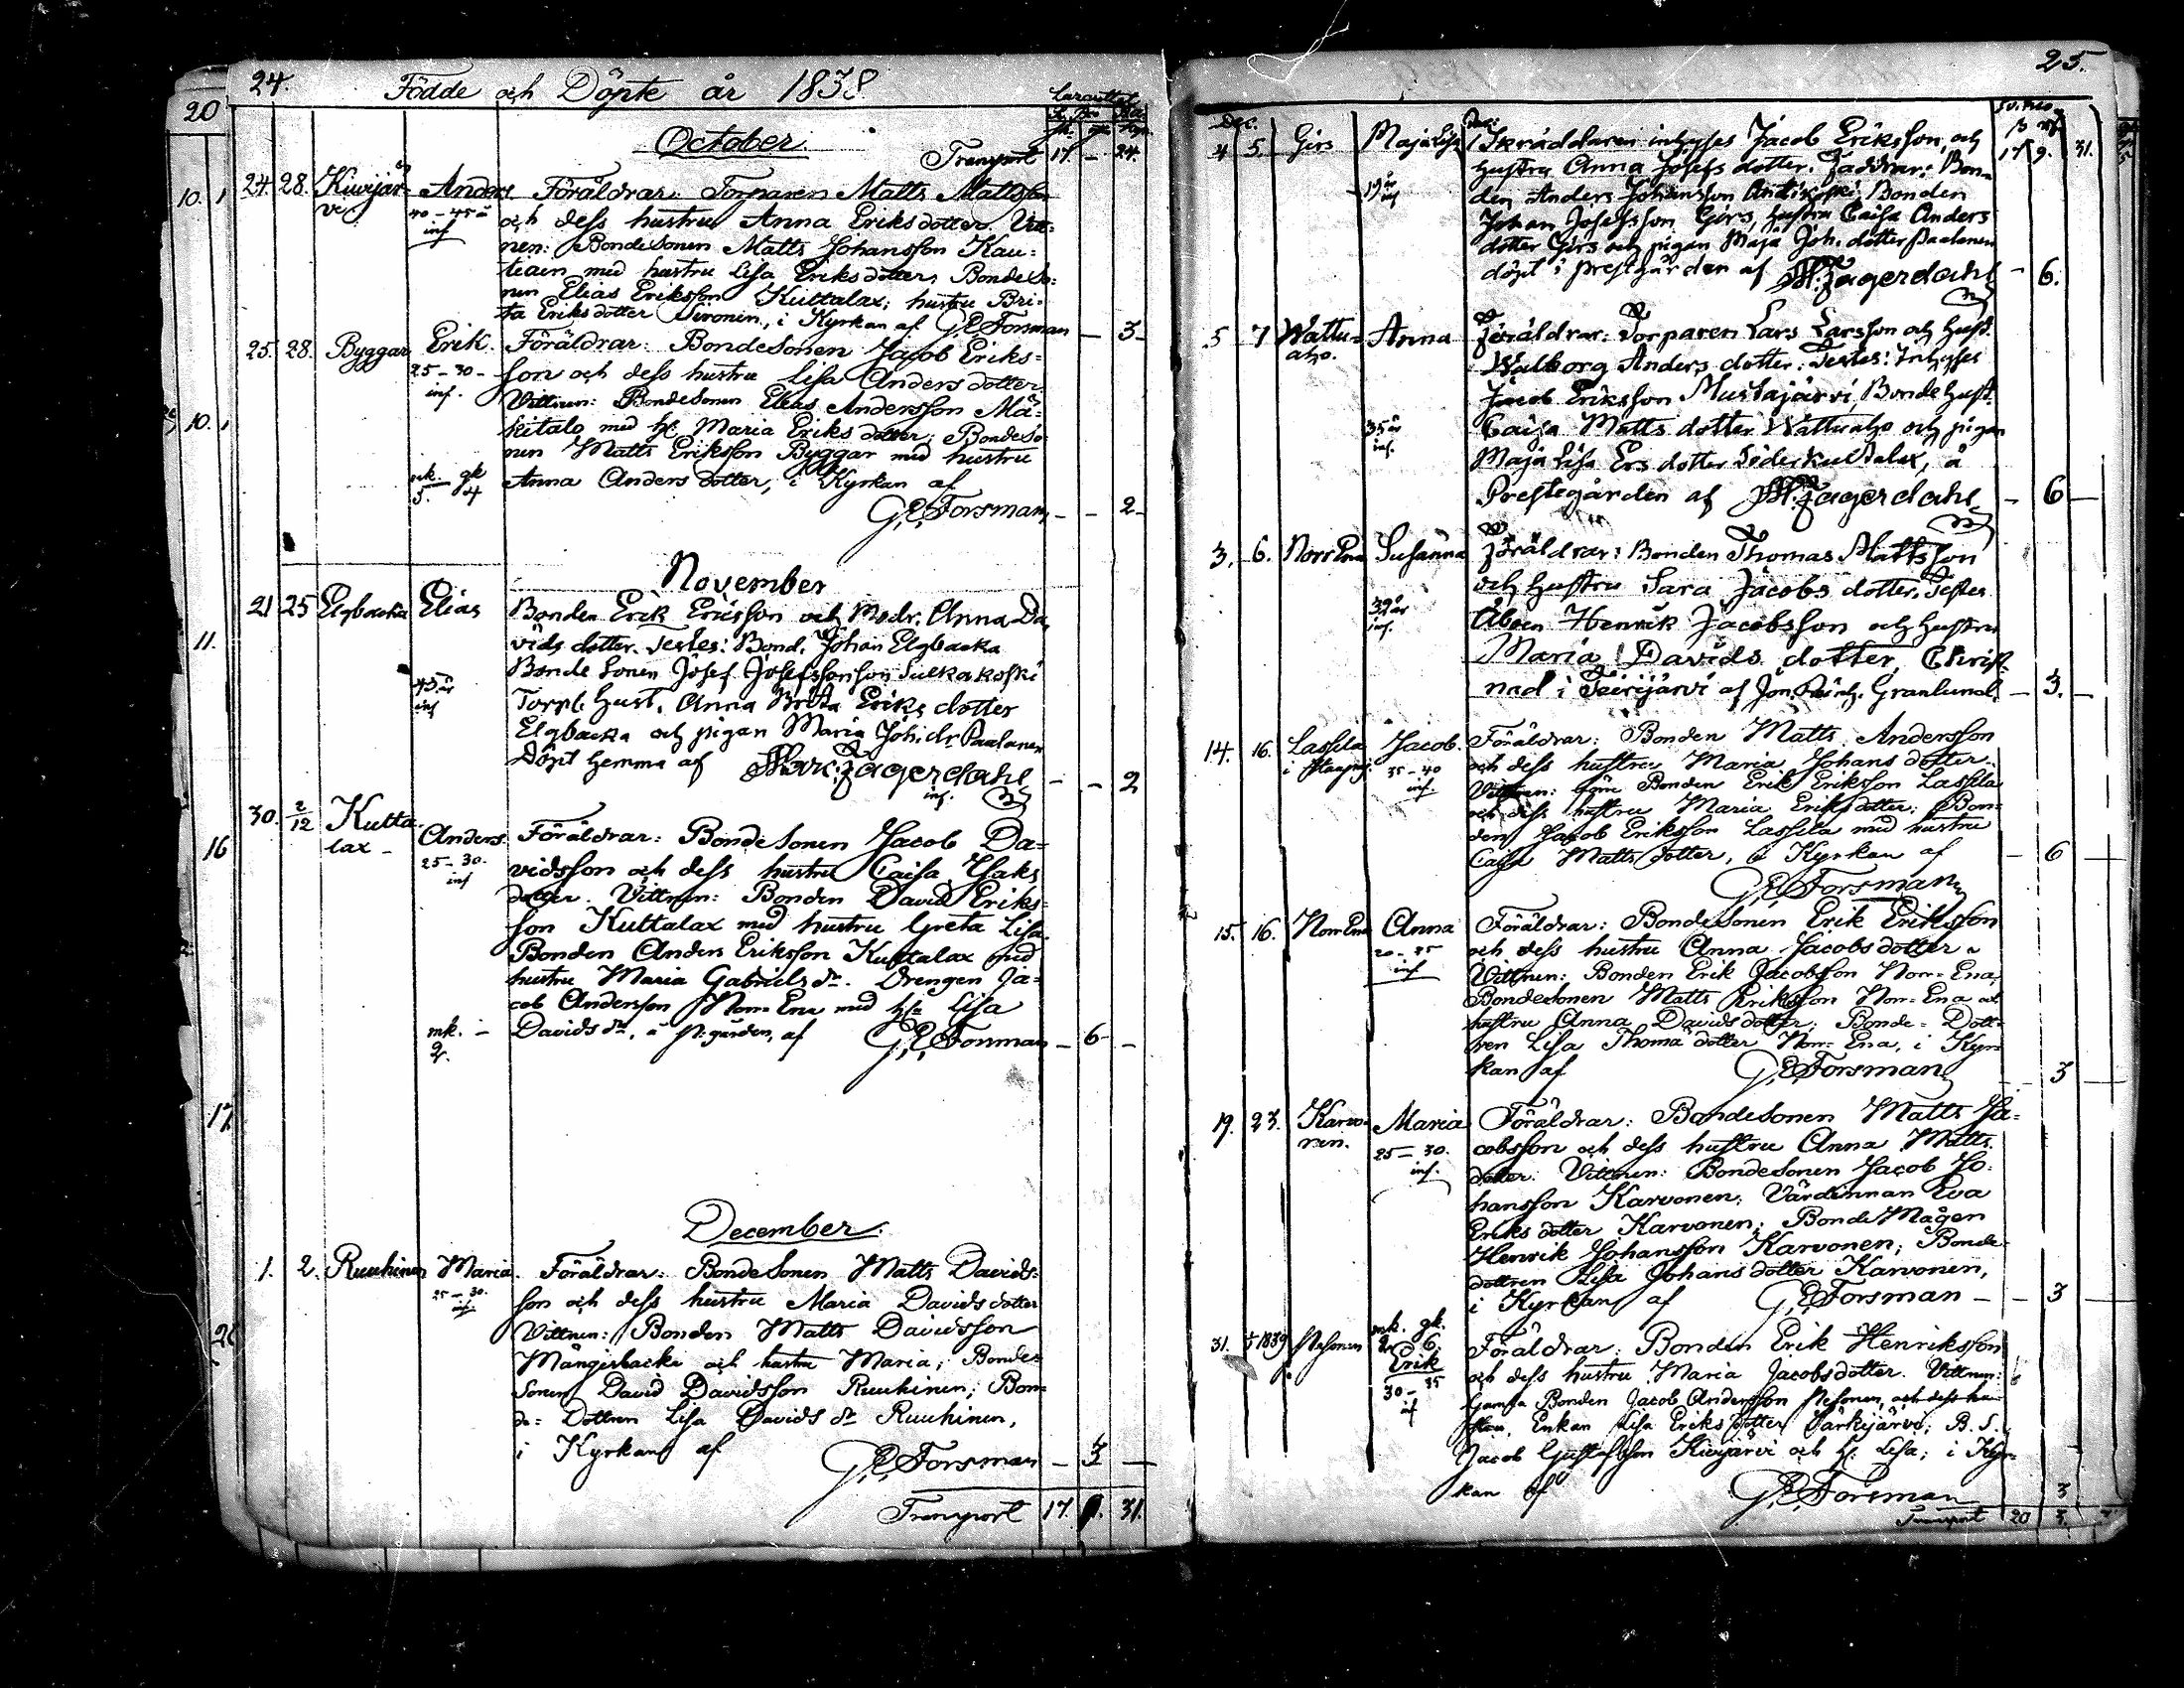 24.
Födde och Döpte år 1838
October
Transport 17. – 24.
24. 28. Kivijär- Anders. Föräldrar: Torparen Matts Mattsson
vi 40–45 år och dess hustru Anna Eriksdotter. Vitt-
inf nen: Bondesonen Matts Johansson Kau-
tiain med hustru Lisa Eriksdotter, Bondeso-
nen Elias Eriksson Kuttalax; hustru Bri-
ta Eriksdotter Sironen, i Kyrkan af G.E. Forsman – 3 –
25. 28. Byggar Erik. Föräldrar: Bondesonen Jacob Eriks-
25–30– son och dess hustru Lisa Andersdotter
inf. Vittnen: Bondesonen Elias Andersson Mä-
kitalo med H. Maria Eriksdotter; Bondeso-
nen Matts Eriksson Byggar med hustru
mk. gk Anna Andersdotter, i Kyrkan af
5. 4 G.E. Forsman – – 2 –
November
21 25 Elgbacka Elias Bonden Erik Ericsson och Modr. Anna Da-
vids dotter. Testes: Bond. Johan Elgbacka
Bonde Sonen Josef Josefssonson Sulkakoski
inf Torp. Hust. Anna Brita Eriks dotter
Elgbacka och pigan Maria Joh. dr Paalanen
Döpt hemma af Zagerdahl – – 2
30. 2/12 Kutta- Anders. Föräldrar: Bondesonen Jacob Da-
lax – 25–30. vidsson och dess hustru Caisa Isaks
inf dotter. Vittnen: Bonden David Eriks-
son Kuttalax med hustru Greta Lisa.
Bonden Anders Eriksson Kuttalax med
hustru Maria Gabriels dr. Drengen Ja-
cob Andersson Norr-Ena med H. Lisa
mk. – Davids dr, å P:gården, af G.E. Forsman – 6 –
2.
December
1. 2. Ruuhinen Maria. Föräldrar: Bondesonen Matts Davids-
25–30. son och dess hustru Maria Davidsdotter
inf. Vittnen: Bonden Matts Davidsson
Mångsbacka och hustru Maria; Bonde-
sonen David Davidsson Ruuhinen; Bon-
de-Dottren Lisa Davids dr Ruuhinen,
i Kyrkan af G.E. Forsman – 3 –
Transport 17. 31.
25.
Dec.
17 9. 31.
4 5. Girs Maja Lisa Skräddaren inhyses Jacob Eriksson och
hustru Anna Josefs dotter. Faddrar: Bon-
19 år inf den Anders Johansson Bonden
Johan Josefsson Girs, hustru Caisa Anders
dotter Girs och pigan Maja Joh. dotter Paalanen
döpt i prestgården af Zagerdahl – 6.
5 7 Wattu- Anna Föräldrar: Torparen Lars Larsson och hust.
aho. Walborg Anders dotter. Testes: Inhyses
Jacob Eriksson Mustajärvi, Bonde hust.
35 år inf. Caisa Matts dotter Wattuaho och pigan
Maja Lisa Ers dotter Söderkultalax, å
Prestegården af Zagerdahl – 6 –
3. 6. Norr Ena Susanna Föräldrar: Bonden Thomas Mattsson
och hustru Sara Jacobs dotter. Testes
39 år inf. Åboen Henrik Jacobsson och hustru
Maria Davids dotter, Christ-
nad i Teerijärvi af Granlund. – 3. –
14. 16. Lassila Jacob. Föräldrar: Bonden Matts Andersson
i 35–40 och dess hustru Maria Johans dotter.
inf. Vittnen: Bonden Erik Eriksson Lassila
och dess hustru Maria Eriksdotter; Bon-
den Jacob Eriksson Lassila med hustru
Caisa Matts dotter, i Kyrkan af – 6 –
G.E. Forsman
15. 16. Norr Ena Anna Föräldrar: Bondesonen Erik Eriksson
20–25 och dess hustru Anna Jacobsdotter
inf Vittnen: Bonden Erik Jacobsson Norr-Ena,
Bondesonen Matts Eriksson Norr-Ena och
hustru Anna Davidsdotter; Bonde-Dott-
ren Lisa Thomä dotter Norr-Ena, i Kyr-
kan af G.E. Forsman 3
19. 23. Karvo- Maria Föräldrar: Bondesonen Matts Ja-
nen. 25–30. cobsson och dess hustru Anna Matts
inf. dotter. Vittnen: Bondesonen Jacob Jo-
hansson Karvonen; Värdinnan Eva
Eriks dotter Karvonen; Bonde Mågen
Henrik Johansson Karvonen; Bonde-
dottren Lisa Johans dotter Karvonen,
i Kyrkan af G.E. Forsman – – 3
mk. gk.
2. 6.
31. 1839 Erik Föräldrar: Bonden Erik Henriksson
30–35 och dess hustru Maria Jacobsdotter. Vittnen:
inf Gamla Bonden Jacob Andersson och dess hu-
stru, Enkan Lisa Eriks dotter Särkijärvi; B. S.
Jacob Gustafsson Kivijärvi och H. Lisa; i Kyr-
kan af G.E. Forsman 3
Transport 20 3.